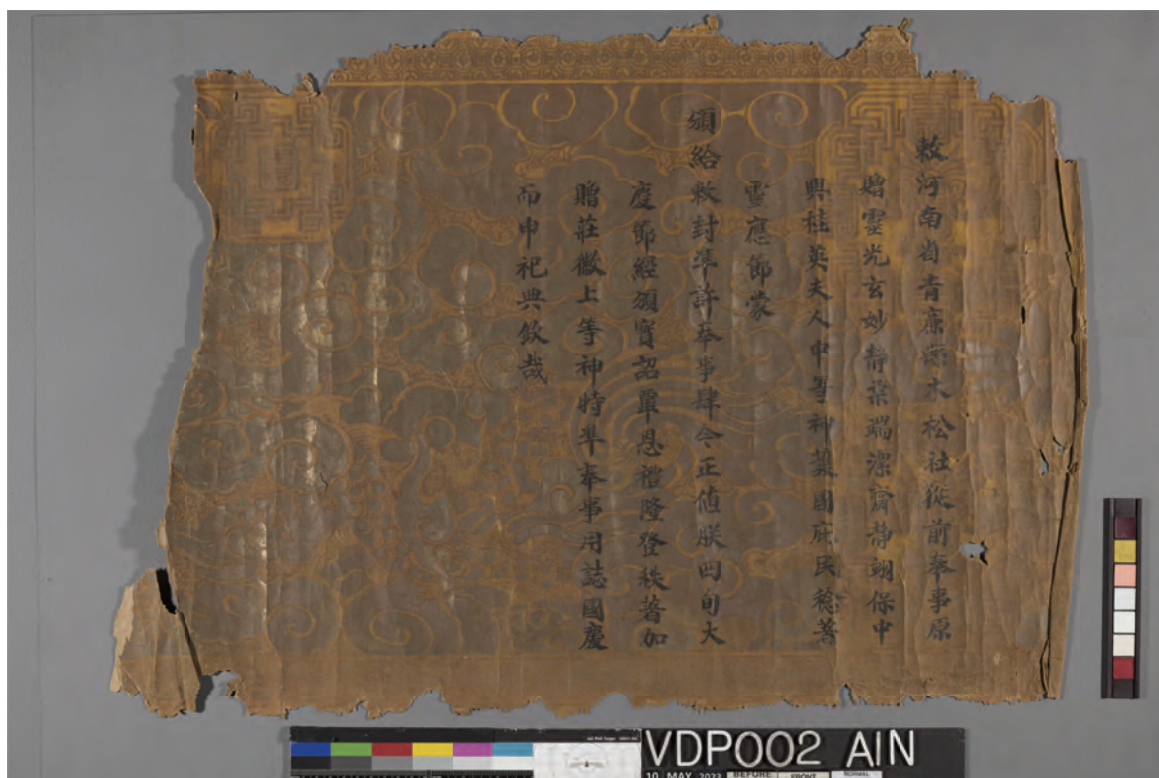 敕河南省青廉縣木松社從前奉事原
贈靈光玄妙靜柔端潔齋靜翊保中
興桂英夫人中等神護國庇民稔著
靈應節蒙
頒給敕封準許奉事肆今正值朕四旬大
慶節經頒寶詔覃恩禮隆登秩著加
贈莊徽上等神特準奉事用誌國慶
而申祀典欽哉
VDP002 AIN
10 MAY 2023 BEFORE FRONT NORMAL